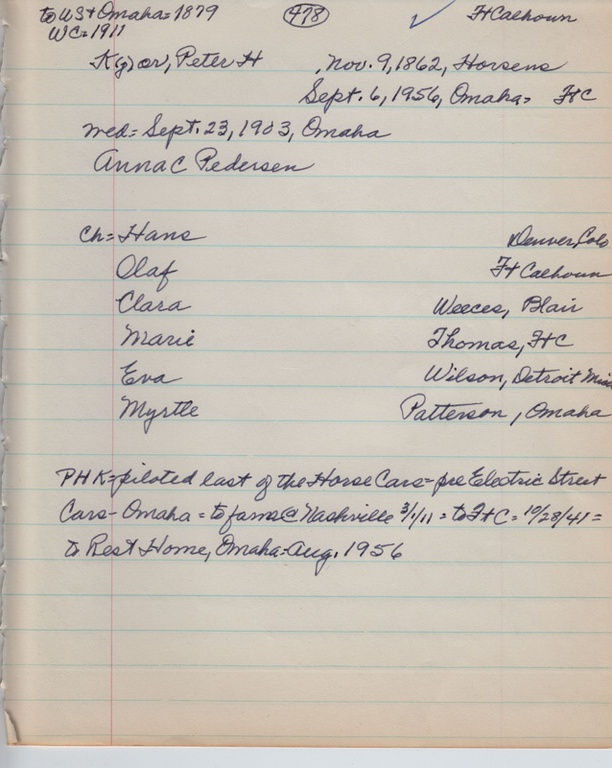 to US + Omaha = 1879 (478) Ft Calhoun
WC = 1911
K(j)or, Peter H , Nov. 9, 1862, Horsens
Sept. 6, 1956, Omaha = FtC
med = Sept. 23, 1903, Omaha
Anna C Pedersen
Ch = Hans Denver, Colo
Olaf Ft Calhoun
Clara Weeces, Blair
Marie Thomas, FtC
Eva Wilson, Detroit Mich
Myrtle Patterson, Omaha
PHK = piloted last of the Horse Cars = pre Electric Street
Cars - Omaha = to farm @ Nashville 3/1/11 = to FtC = 10/28/41 =
to Rest Home, Omaha = Aug. 1956